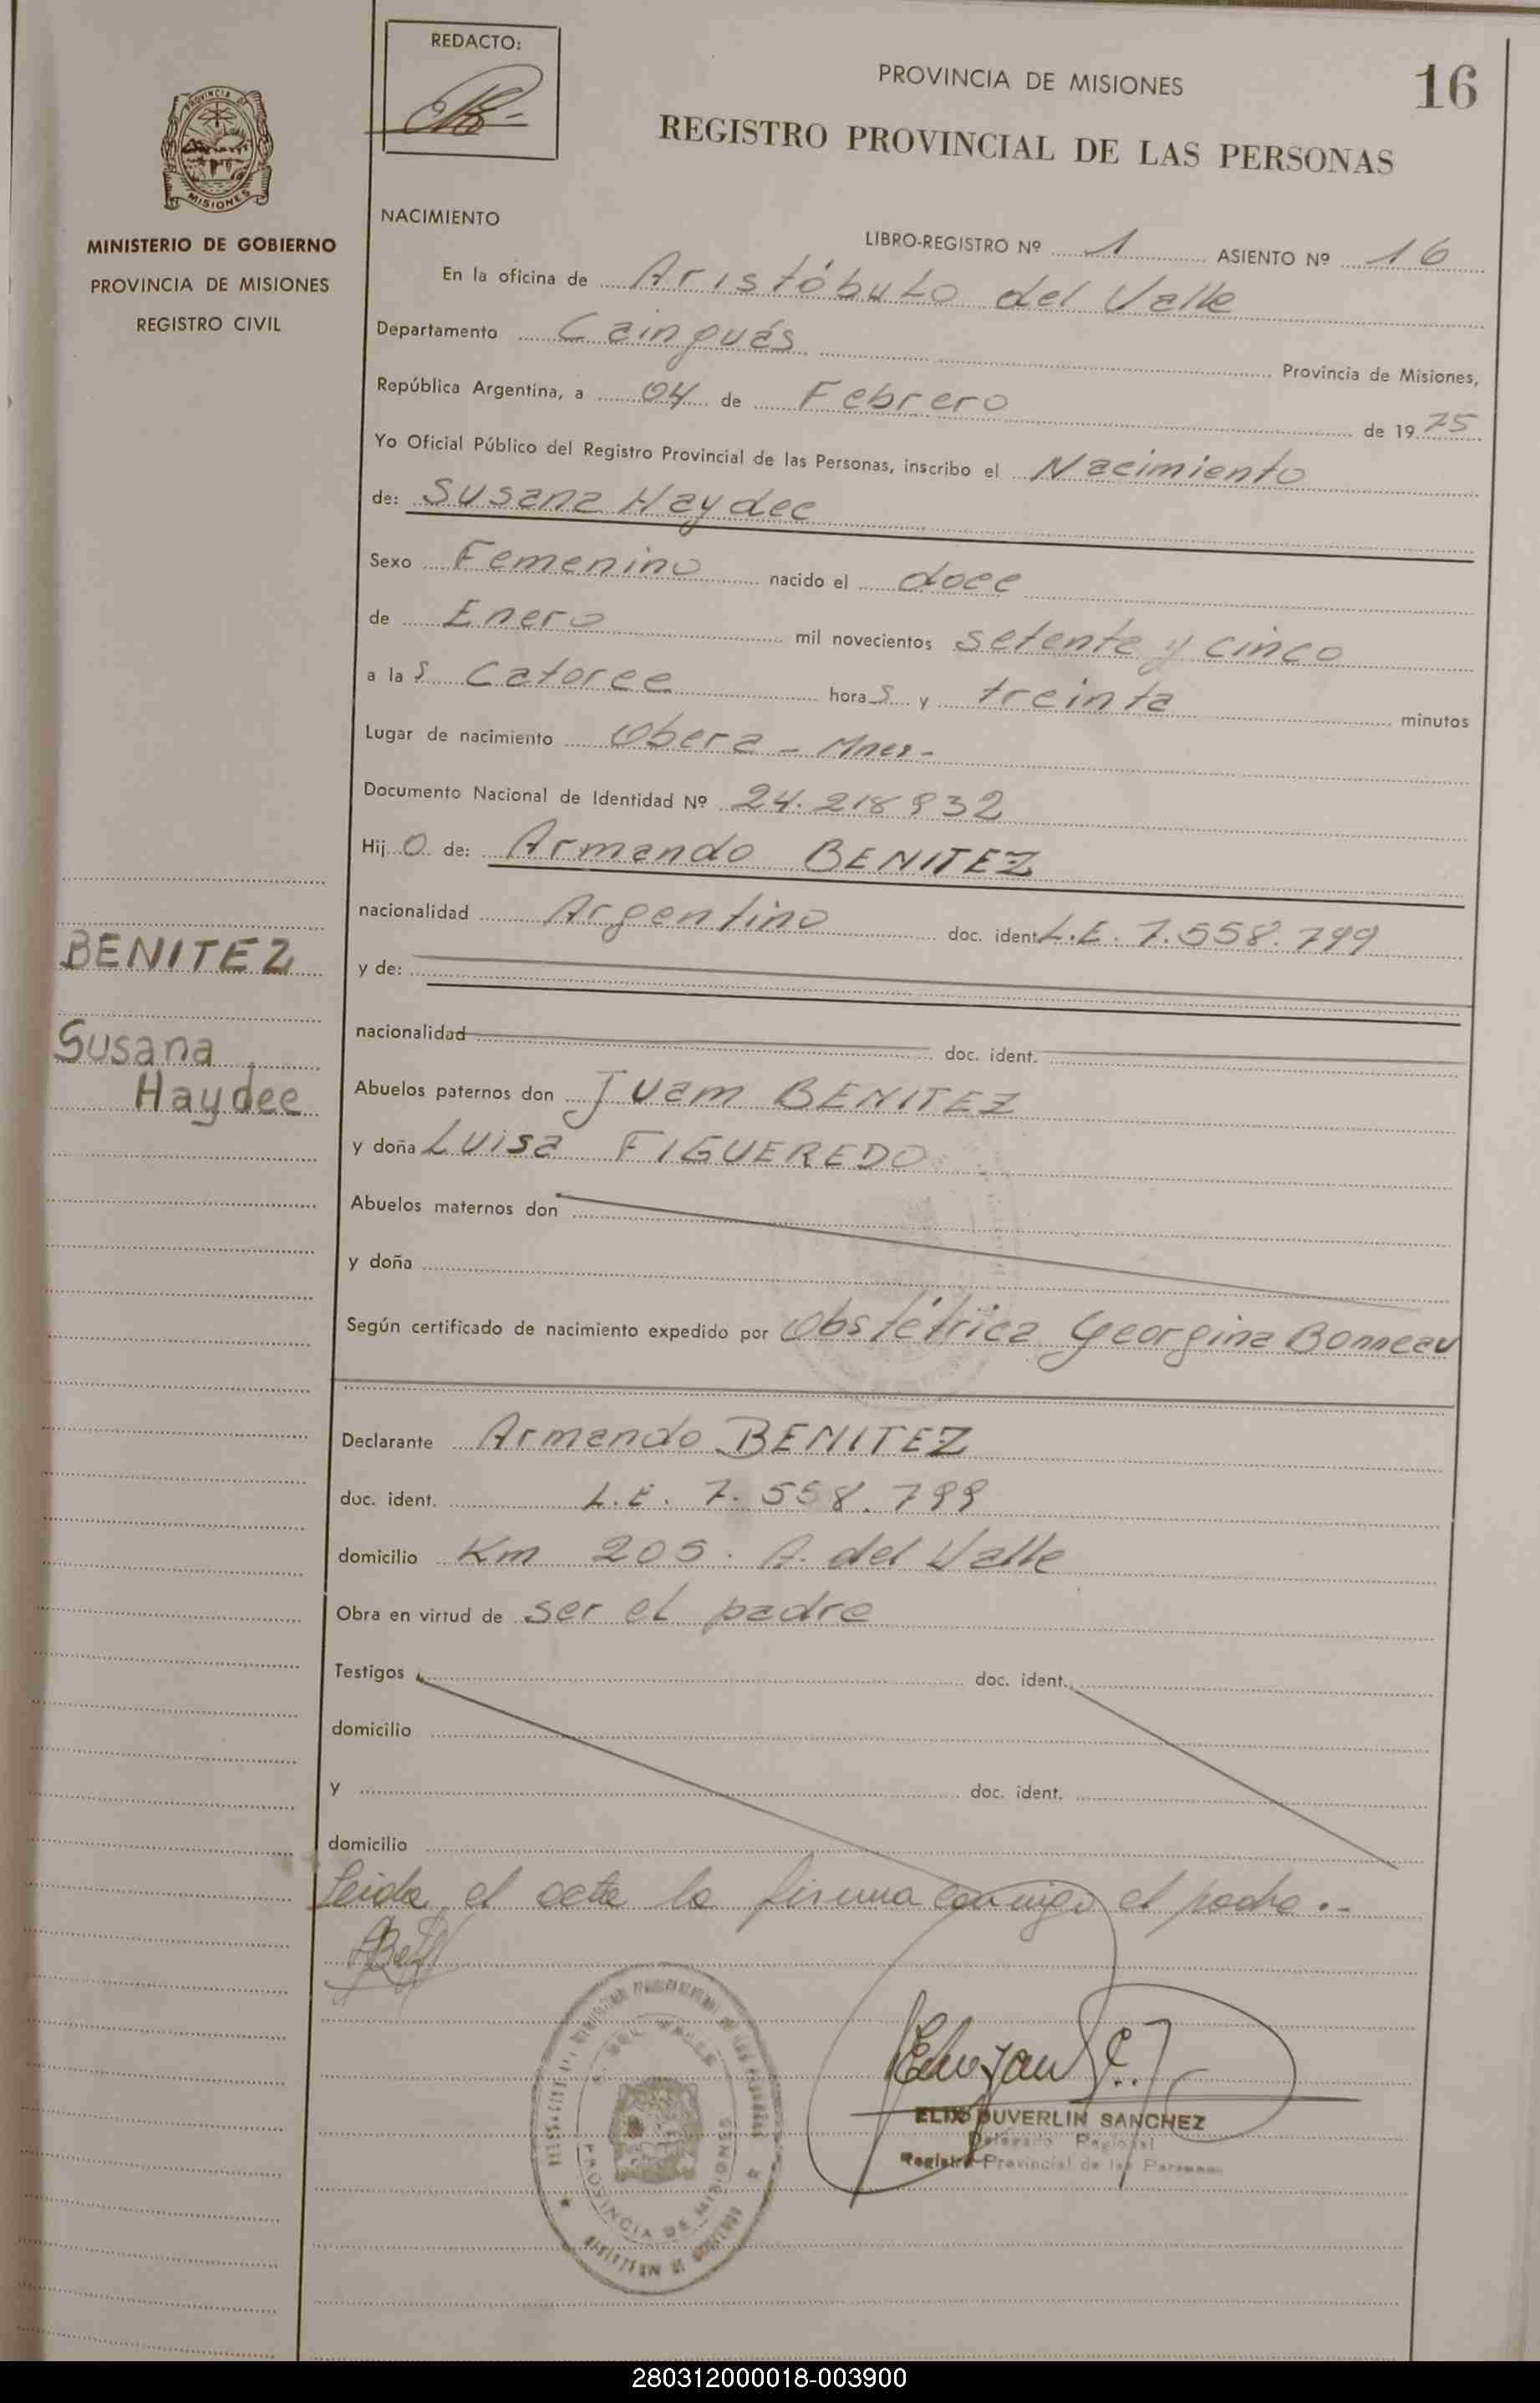 REDACTO:
PROVINCIA DE MISIONES
16
REGISTRO PROVINCIAL DE LAS PERSONAS
PROVINCIA DE
MISIONES
MINISTERIO DE GOBIERNO
PROVINCIA DE MISIONES
REGISTRO CIVIL
NACIMIENTO
LIBRO-REGISTRO Nº 1 ASIENTO Nº 16
En la oficina de Aristóbulo del Valle
Departamento Cainguás Provincia de Misiones,
República Argentina, a 04 de Febrero de 1975
Yo Oficial Público del Registro Provincial de las Personas, inscribo el Nacimiento
de: Susana Haydee
Sexo Femenino nacido el doce
de Enero mil novecientos setenta y cinco
a las catorce horas y treinta minutos
Lugar de nacimiento Obera - Mnes-
Documento Nacional de Identidad Nº 24.218932
Hijo de: Armando BENITEZ
nacionalidad Argentino doc. ident. L.E. 7.558.799
y de:
nacionalidad doc. ident.
BENITEZ
Susana
Haydee
Abuelos paternos don Juan BENITEZ
y doña Luisa FIGUEREDO
Abuelos maternos don
y doña
Según certificado de nacimiento expedido por Obstétrica Georgina Bonneau
Declarante Armando BENITEZ
doc. ident. L.E. 7.558.799
domicilio Km 205. A. del Valle
Obra en virtud de ser el padre
Testigos doc. ident.
domicilio
y doc. ident.
domicilio
Leida el acta la firma conmigo el padre.-
A. DEL VALLE
PROVINCIA DE MISIONES
ELIX DUVERLIN SANCHEZ
Delegado Regional
Registro Provincial de las Personas
280312000018-003900